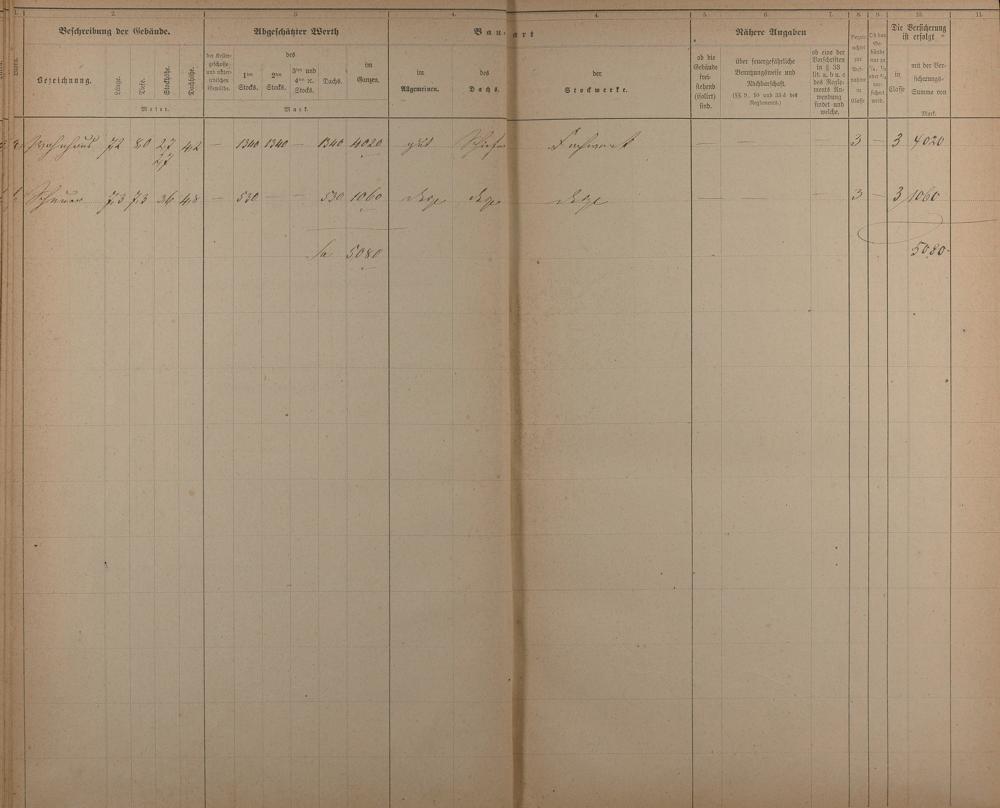 1. 2. 3. 4. 4. 5. 6. 7. 8. 9. 10. 11.
Beschreibung der Gebäude. Abgeschätzter Werth Bauart Nähere Angaben Die Versicherung ist erfolgt
Bezeichnung. Länge. Tiefe. Stockhöhe. Dachhöhe.
Meter.
des
1ten Stocks. 2ten Stocks. 3ten und 4ten ꝛc. Stocks. Dachs. im Ganzen.
Mark.
im Allgemeinen. des Dachs. der Stockwerke.
ob die Gebäude freistehend (isolirt) sind.
über feuergefährliche Benutzungsweise und Nachbarschaft.
(§§ 9, 10 und 33 d des Reglements.)
ob eine der Vorschriften in § 33 lit. a, b u. c des Reglements Anwendung findet und welche.
in Classe mit der Versicherungs-Summe von
Mark.
Wohnhaus 7,2 8,0 2,7 4,2 — 1340 1340 — 1340 4020 gut Schiefer Fachwerk — — — 3 — 3 4020
2,7
Scheuer 7,3 7,3 3,6 4,8 — 530 — 530 1060 desgl desgl desgl — — — 3 — 3 1060
Sa 5080 5080